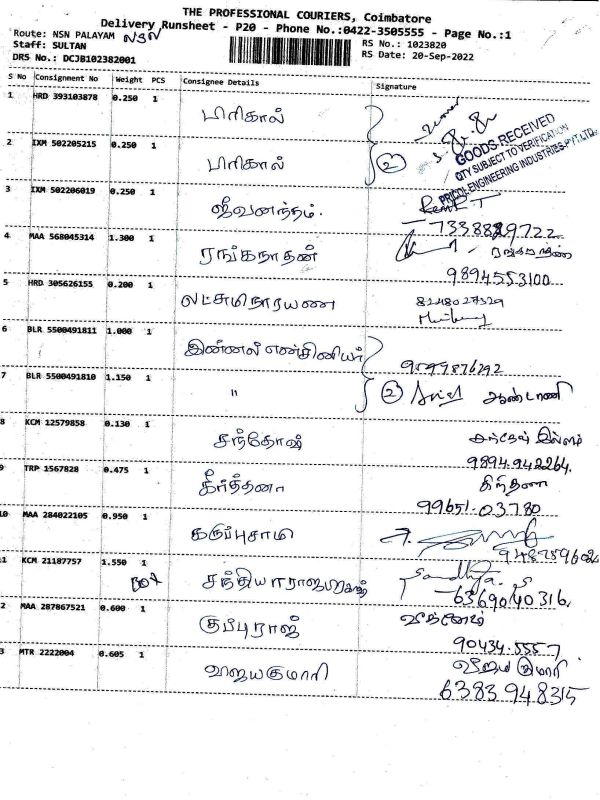 THE PROFESSIONAL COURIERS, Coimbatore
Delivery Runsheet - P20 - Phone No.:0422-3505555 - Page No.:1
Route: NSN PALAYAM NSN
Staff: SULTAN
DRS No.: DCJB102382001
RS No.: 1023820
RS Date: 20-Sep-2022
S No Consignment No Weight PCS Consignee Details Signature
1 HRD 393103878 0.250 1 பிரிகால்
GOODS RECEIVED
QTY SUBJECT TO VERIFICATION
PRICOL ENGINEERING INDUSTRIES PVT.LTD.
2 IXM 502205215 0.250 1 பிரிகால் 2
3 IXM 502206019 0.250 1 ஜீவனந்தம்.
7338889722
4 MAA 568045314 1.300 1 ரங்கநாதன்
9894553100
5 HRD 305626155 0.200 1 லட்சுமிநாராயண
8248027329
6 BLR 5500491811 1.000 1 இன்னல் என்சினியர்
7 BLR 5500491810 1.150 1 " 2 ஆண்டாணி
8 KCM 12579858 0.130 1 சந்தோஷ் இல்லம்
9894.942264.
9 TRP 1567828 0.475 1 கீர்த்தனா கிர்தனா
99651-03780
10 MAA 284022105 0.950 1 கருப்புசாமி
11 KCM 21187757 1.550 1 Sandhya. S
BOX
6369040316.
12 MAA 287867521 0.600 1 குப்புராஜ்
90434.5557
13 MTR 2222004 0.605 1 விஜயகுமாரி விஜய குமாரி
6383948315